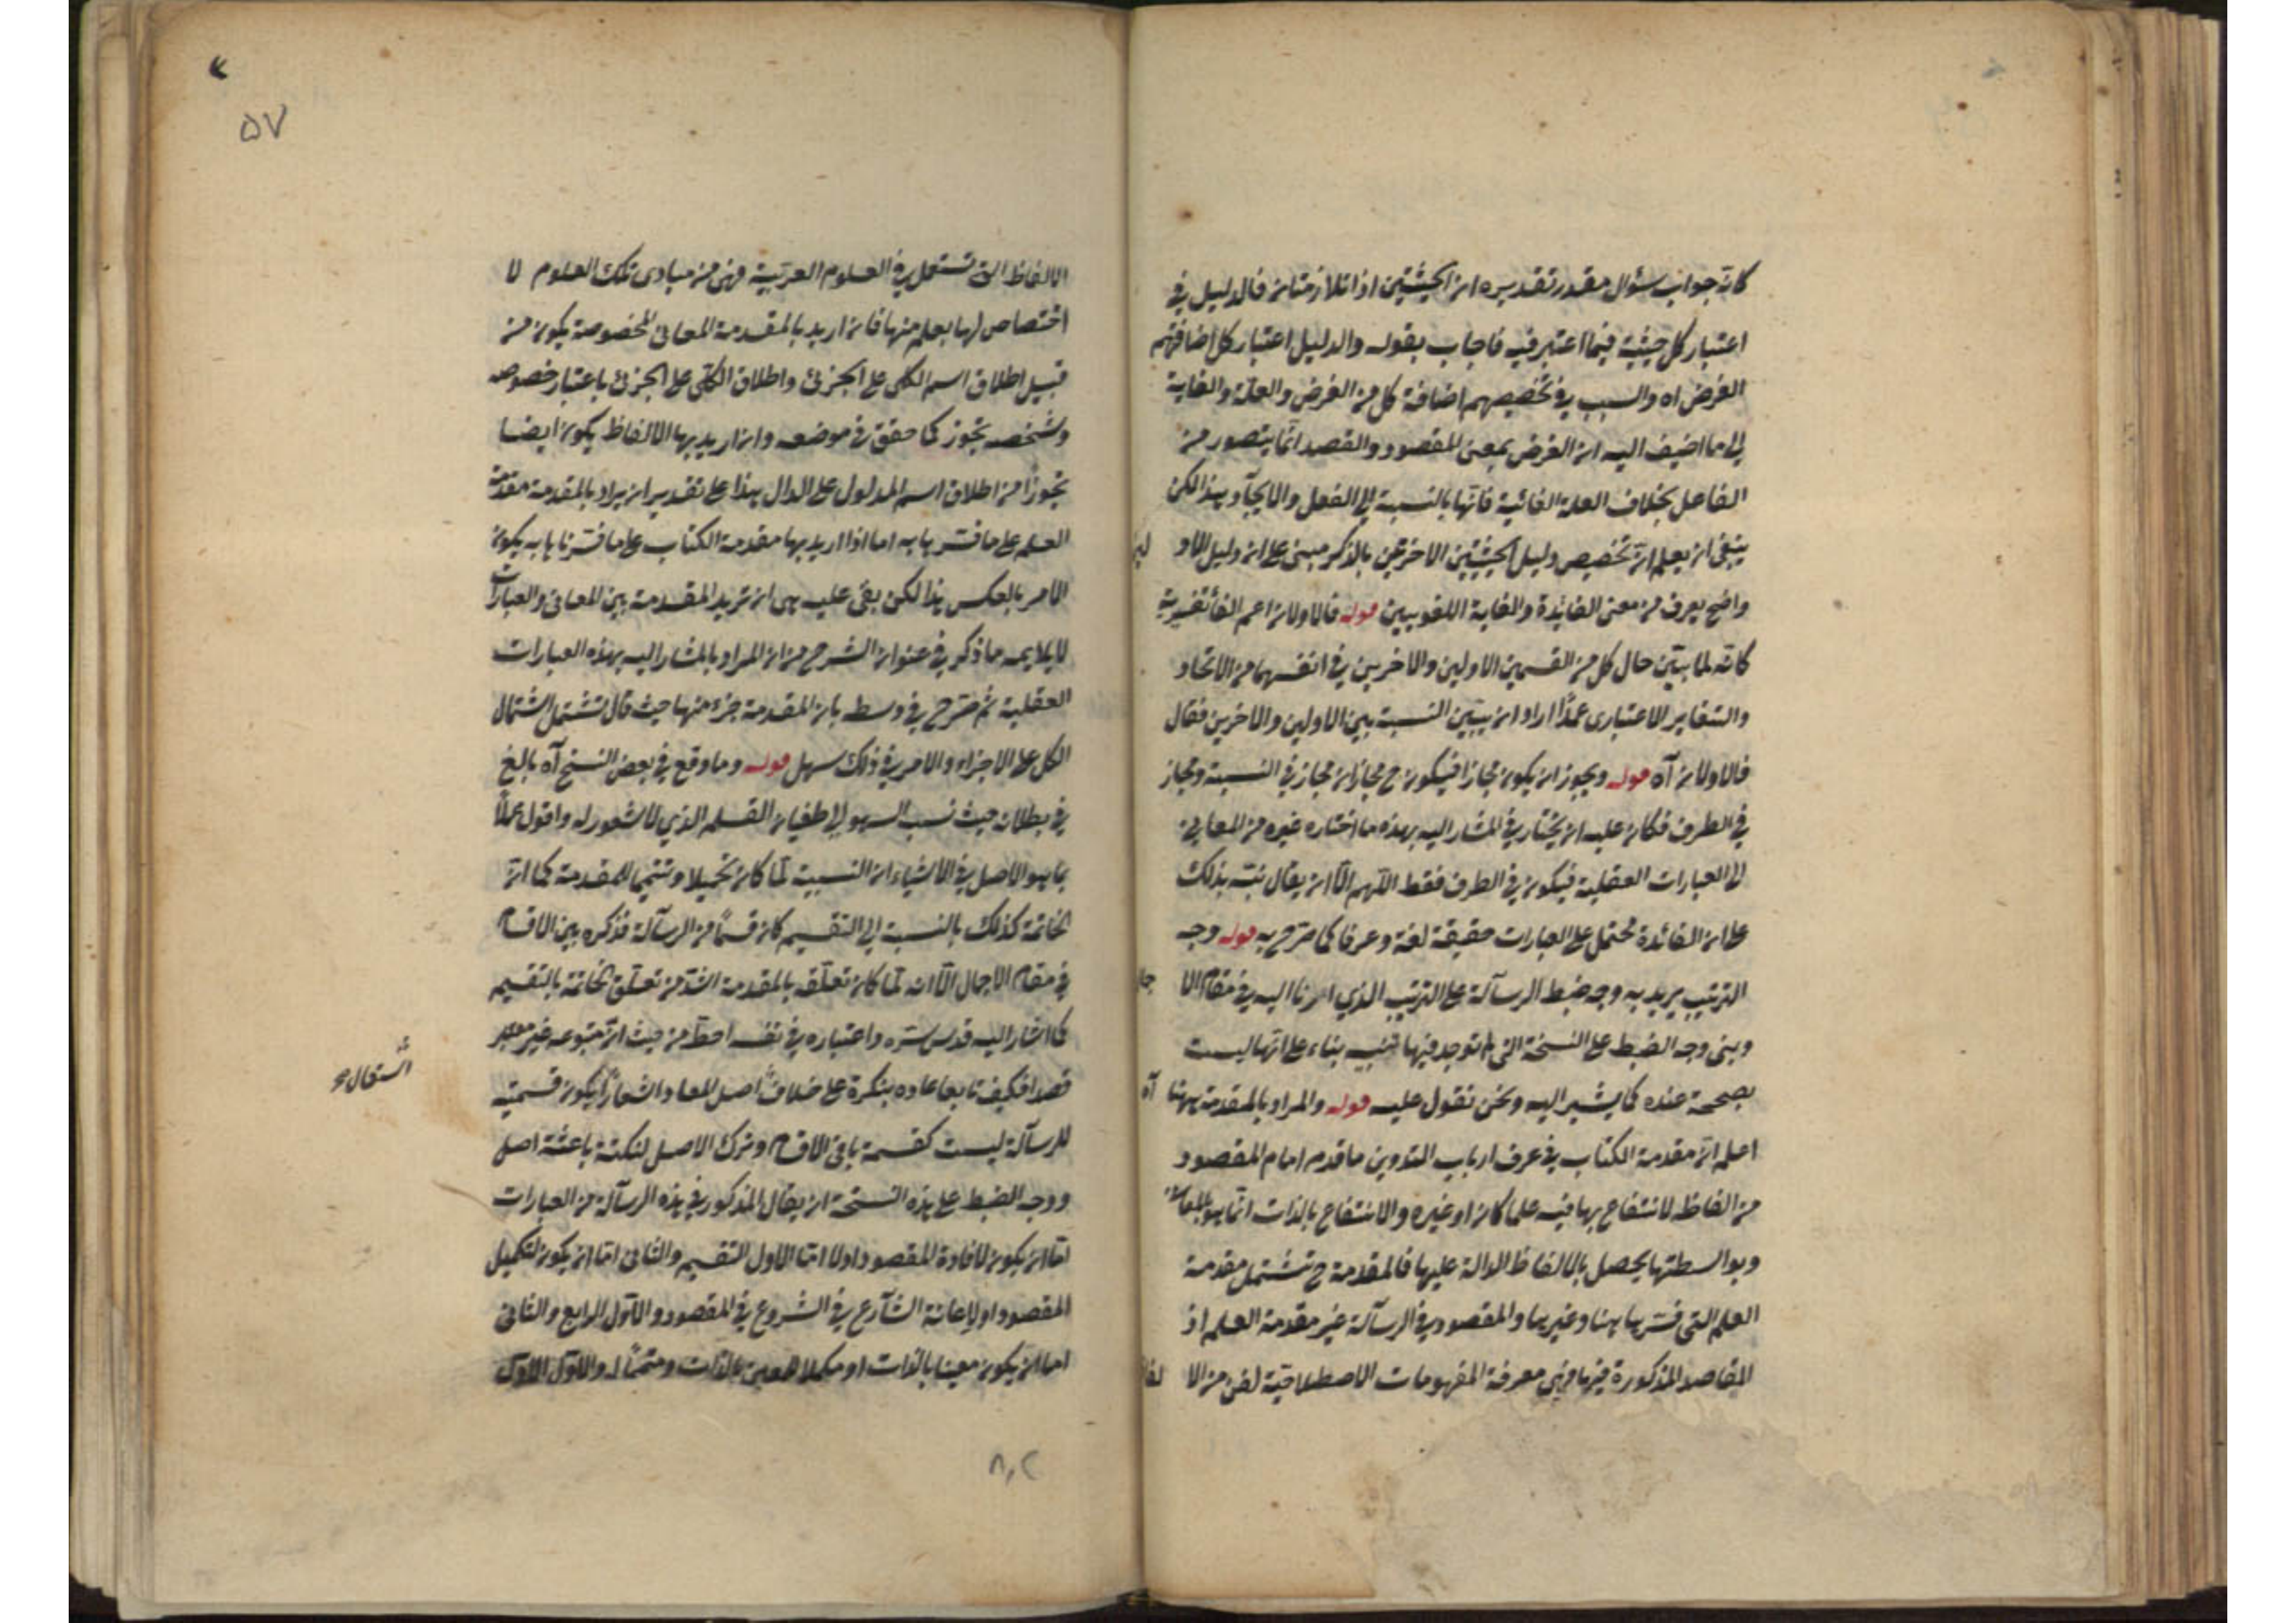 كانه جواب سؤال مقدر تقديره ان الحيثيتين اذا تلازمتا فالدليل في
اعتبار كل حيثية فيما اعتبر فيه فاجاب بقوله والدليل اعتبار كل اضافتهم
الغرض اه والسبب في تخصيصهم اضافة كل من الغرض والعلة والغاية
الى ما اضيف اليه ان الغرض بمعنى المقصود والقصد انما يتصور من
الفاعل بخلاف العلة الغائية فانها بالنسبة الى الفعل والايجاد هذا لكن
ينبغى ان يعلم ان تخصيص دليل الحيثيتين الاخرتين بالذكر مبنى على ان دليل الاو لين
واضح يعرف من معنى الفائدة والغاية اللغويين قوله فالاولان اعم الفاء تفسيرية
كانه لما بين حال كل من القسمين الاولين والاخرين في انفسهما من الاتحاد
والتغاير الاعتبارى عمدًا اراد ان يبين النسبة بين الاولين والاخرين فقال
فالاولان آه قوله ويجوز ان يكون مجازا فيكون ح مجازان مجاز في النسبة ومجاز
في الطرف فكان عليه ان يختار في المشار اليه بهذه ما اختاره غيره من المعانى
الى العبارات العقلية فيكون في الطرف فقط اللهم الا ان يقال نبه بذلك
على ان الفائدة تحتمل على العبارات حقيقة لغة وعرفا كما صرح به قوله وجه
الترتيب يريد به وجه ضبط الرسالة على الترتيب الذي اشرنا اليه في مقام الا جمال
وبنى وجه الضبط على النسخة التي لم توجد فيها تنبيه بناء على انها ليست
بصحيحة عنده كما يشير اليه ونحن نقول عليه قوله والمراد بالمقدمة ههنا آه
اعلم ان مقدمة الكتاب في عرف ارباب التدوين ما قدم امام المقصود
من الفاظ لانتفاع بها فيه علما كان او غيره والانتفاع بالذات انما هو بالمعانى
وبواسطتها يحصل بالالفاظ الدالة عليها فالمقدمة ح تشتمل مقدمة
العلم التى فسرها هنا وغيرها والمقصود في الرسالة غير مقدمة العلم اذ
المقاصد المذكورة فيها فهي معرفة المفهومات الاصطلاحية لفن من الا لفاظ
۵۷
الالفاظ التى تستعمل في العلوم العربية فهى من مبادى تلك العلوم لا
اختصاص لها بعلم منها فان اريد بالمقدمة المعانى المخصوصة يكون من
قبيل اطلاق اسم الكلى على الجزئى واطلاق الكلى على الجزئى باعتبار خصوصه
وشخصه تجوز كما حقق في موضعه وان اريد بها الالفاظ يكون ايضا
تجوزًا من اطلاق اسم المدلول على الدال هذا على تقدير ان يراد بالمقدمة مقدمة
العلم على ما فسرها به اما اذا اريد بها مقدمة الكتاب على ما فسرناها به يكون
الامر بالعكس هذا لكن بقى عليه هى ان ترديد المقدمة بين المعانى والعبارات
لا يلايمه ما ذكر في عنوان الشرح من ان المراد بالمشار اليه بهذه العبارات
العقلية ثم صرح في وسط بان المقدمة جزء منها حيث قال تشتمل اشتمال
الكل على الاجزاء والامر في ذلك سهل قوله وما وقع في بعض النسخ آه بالغ
في بطلانه حيث نسب السهو الى طغيان القلم الذي لا شعور له واقول عملًا
بما هو الاصل في الاشياء ان التنبيه لما كان تكميلا وتتميما للمقدمة كما ان
الخاتمة كذلك بالنسبة الى التقسيم كان قسمًا من الرسالة فذكره بين الاقسام
في مقام الاجمال الا ان لما كان تعلقه بالمقدمة اشد من تعلق الخاتمة بالتقسيم
كما اشار اليه قدس سره واعتباره في نفسه احط من حيث ان متبوعه غير معتبر
قصدا فكيف تابعا عاده بنكرة على خلاف اصل المعاد اشعارًا بكون قسميته
للرسالة ليست كقسمة باقى الاقسام وترك الاصل لنكتة باعثة اصل
ووجه الضبط على هذه النسخة ان يقال المذكور في هذه الرسالة من العبارات
اما ان يكون لافادة المقصود اولا اما الاول التقسيم والثانى اما ان يكون لتكميل
المقصود او لاعانة الشارع في الشروع في المقصود والاول الرابع والثانى
اما ان يكون معينا بالذات او مكملا لمعين بالذات ومتممًا له والاول الاول